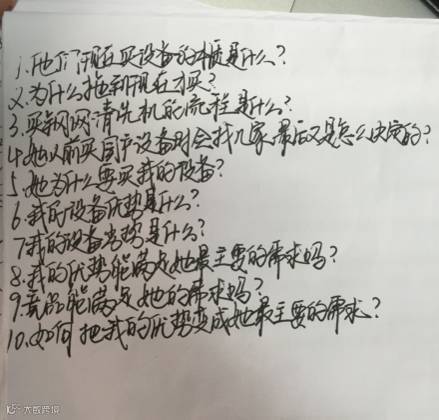 1.他们现在买设备的本质是什么?
2.为什么拖到现在才买?
3.买钢网清洗机的流程是什么?
4.她以前买国产设备时会找几家,最后又是怎么决定的?
5.她为什么要买我的设备?
6.我的设备优势是什么?
7.我的设备劣势是什么?
8.我的优势能满足她最主要的需求吗?
9.竞品能满足她的需求吗?
10.如何把我的优势变成她最主要的需求?
大数跨境